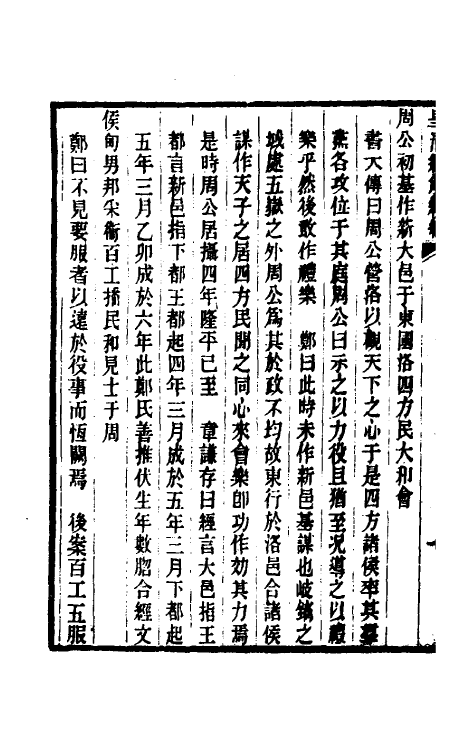 皇清經解續編
周公初基作新大邑于東國洛四方民大和會
書大傳曰周公營洛以觀天下之心于是四方諸侯率其羣
黨各攻位于其庭周公曰示之以力役且猶至况導之以禮
樂乎然後敢作禮樂　鄭曰此時未作新邑基謀也岐鎬之
域處五嶽之外周公為其於政不均故東行於洛邑合諸侯
謀作天子之居四方民聞之同心來會樂即功作効其力焉
是時周公居攝四年隆平已至　章謙存曰經言大邑指王
都言新邑指下都王都起四年三月成於五年三月下都起
五年三月乙卯成於六年此鄭氏善推伏生年數脗合經文
侯甸男邦采衞百工播民和見士于周
鄭曰不見要服者以遠於役事而恆闕焉　後案百工五服